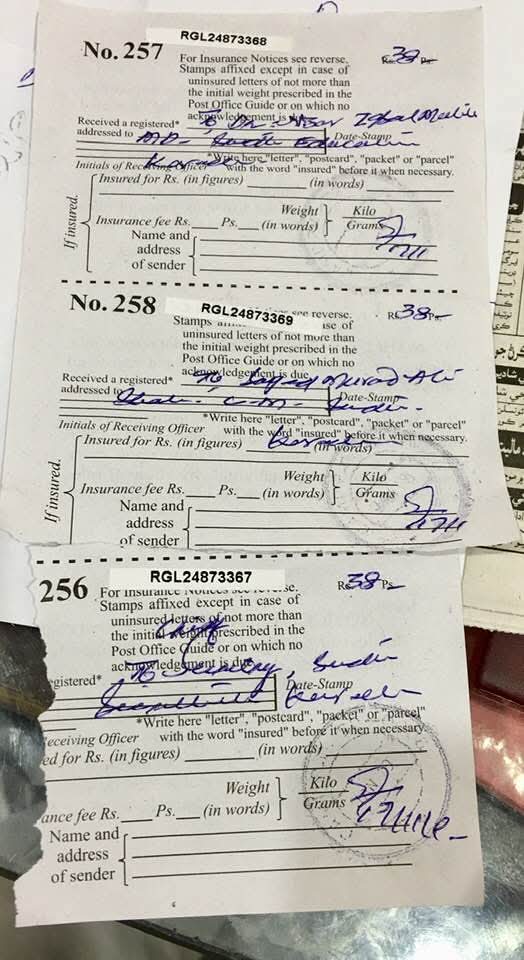 RGL24873368
No. 257
For Insurance Notices see reverse.
Rs. 38 Ps.
Stamps affixed except in case of
uninsured letters of not more than
the initial weight prescribed in the
Post Office Guide or on which no
acknowledgement is due.
Received a registered* To Dr. Iqbal
addressed to Date-Stamp
*Write here "letter", postcard", packet" or parcel"
Initials of Receiving Officer with the word "insured" before it when necessary.
If insured.
Insured for Rs. (in figures) (in words)
Weight Kilo
Insurance fee Rs. Ps. (in words) Grams
Name and
address
of sender
RGL24873369
No. 258
see reverse.
Rs. 38 Ps.
Stamps use of
uninsured letters of not more than
the initial weight prescribed in the
Post Office Guide or on which no
acknowledgement is due.
Received a registered* To Murad Ali
addressed to Shah C.M. Sindh Date-Stamp
*Write here "letter", postcard", packet" or parcel"
Initials of Receiving Officer with the word "insured" before it when necessary.
If insured.
Insured for Rs. (in figures) (in words)
Weight Kilo
Insurance fee Rs. Ps. (in words) Grams
Name and
address
of sender
RGL24873367
256
For Insurance Notices see reverse.
Rs. 38 Ps.
Stamps affixed except in case of
uninsured letters of not more than
the initial weight prescribed in the
Post Office Guide or on which no
acknowledgement is due.
Chief
egistered* To Secretary, Sindh
Date-Stamp
*Write here "letter", postcard", packet" or parcel"
eceiving Officer with the word "insured" before it when necessary.
ed for Rs. (in figures) (in words)
Weight Kilo
ance fee Rs. Ps. (in words) Grams
Name and
address
of sender